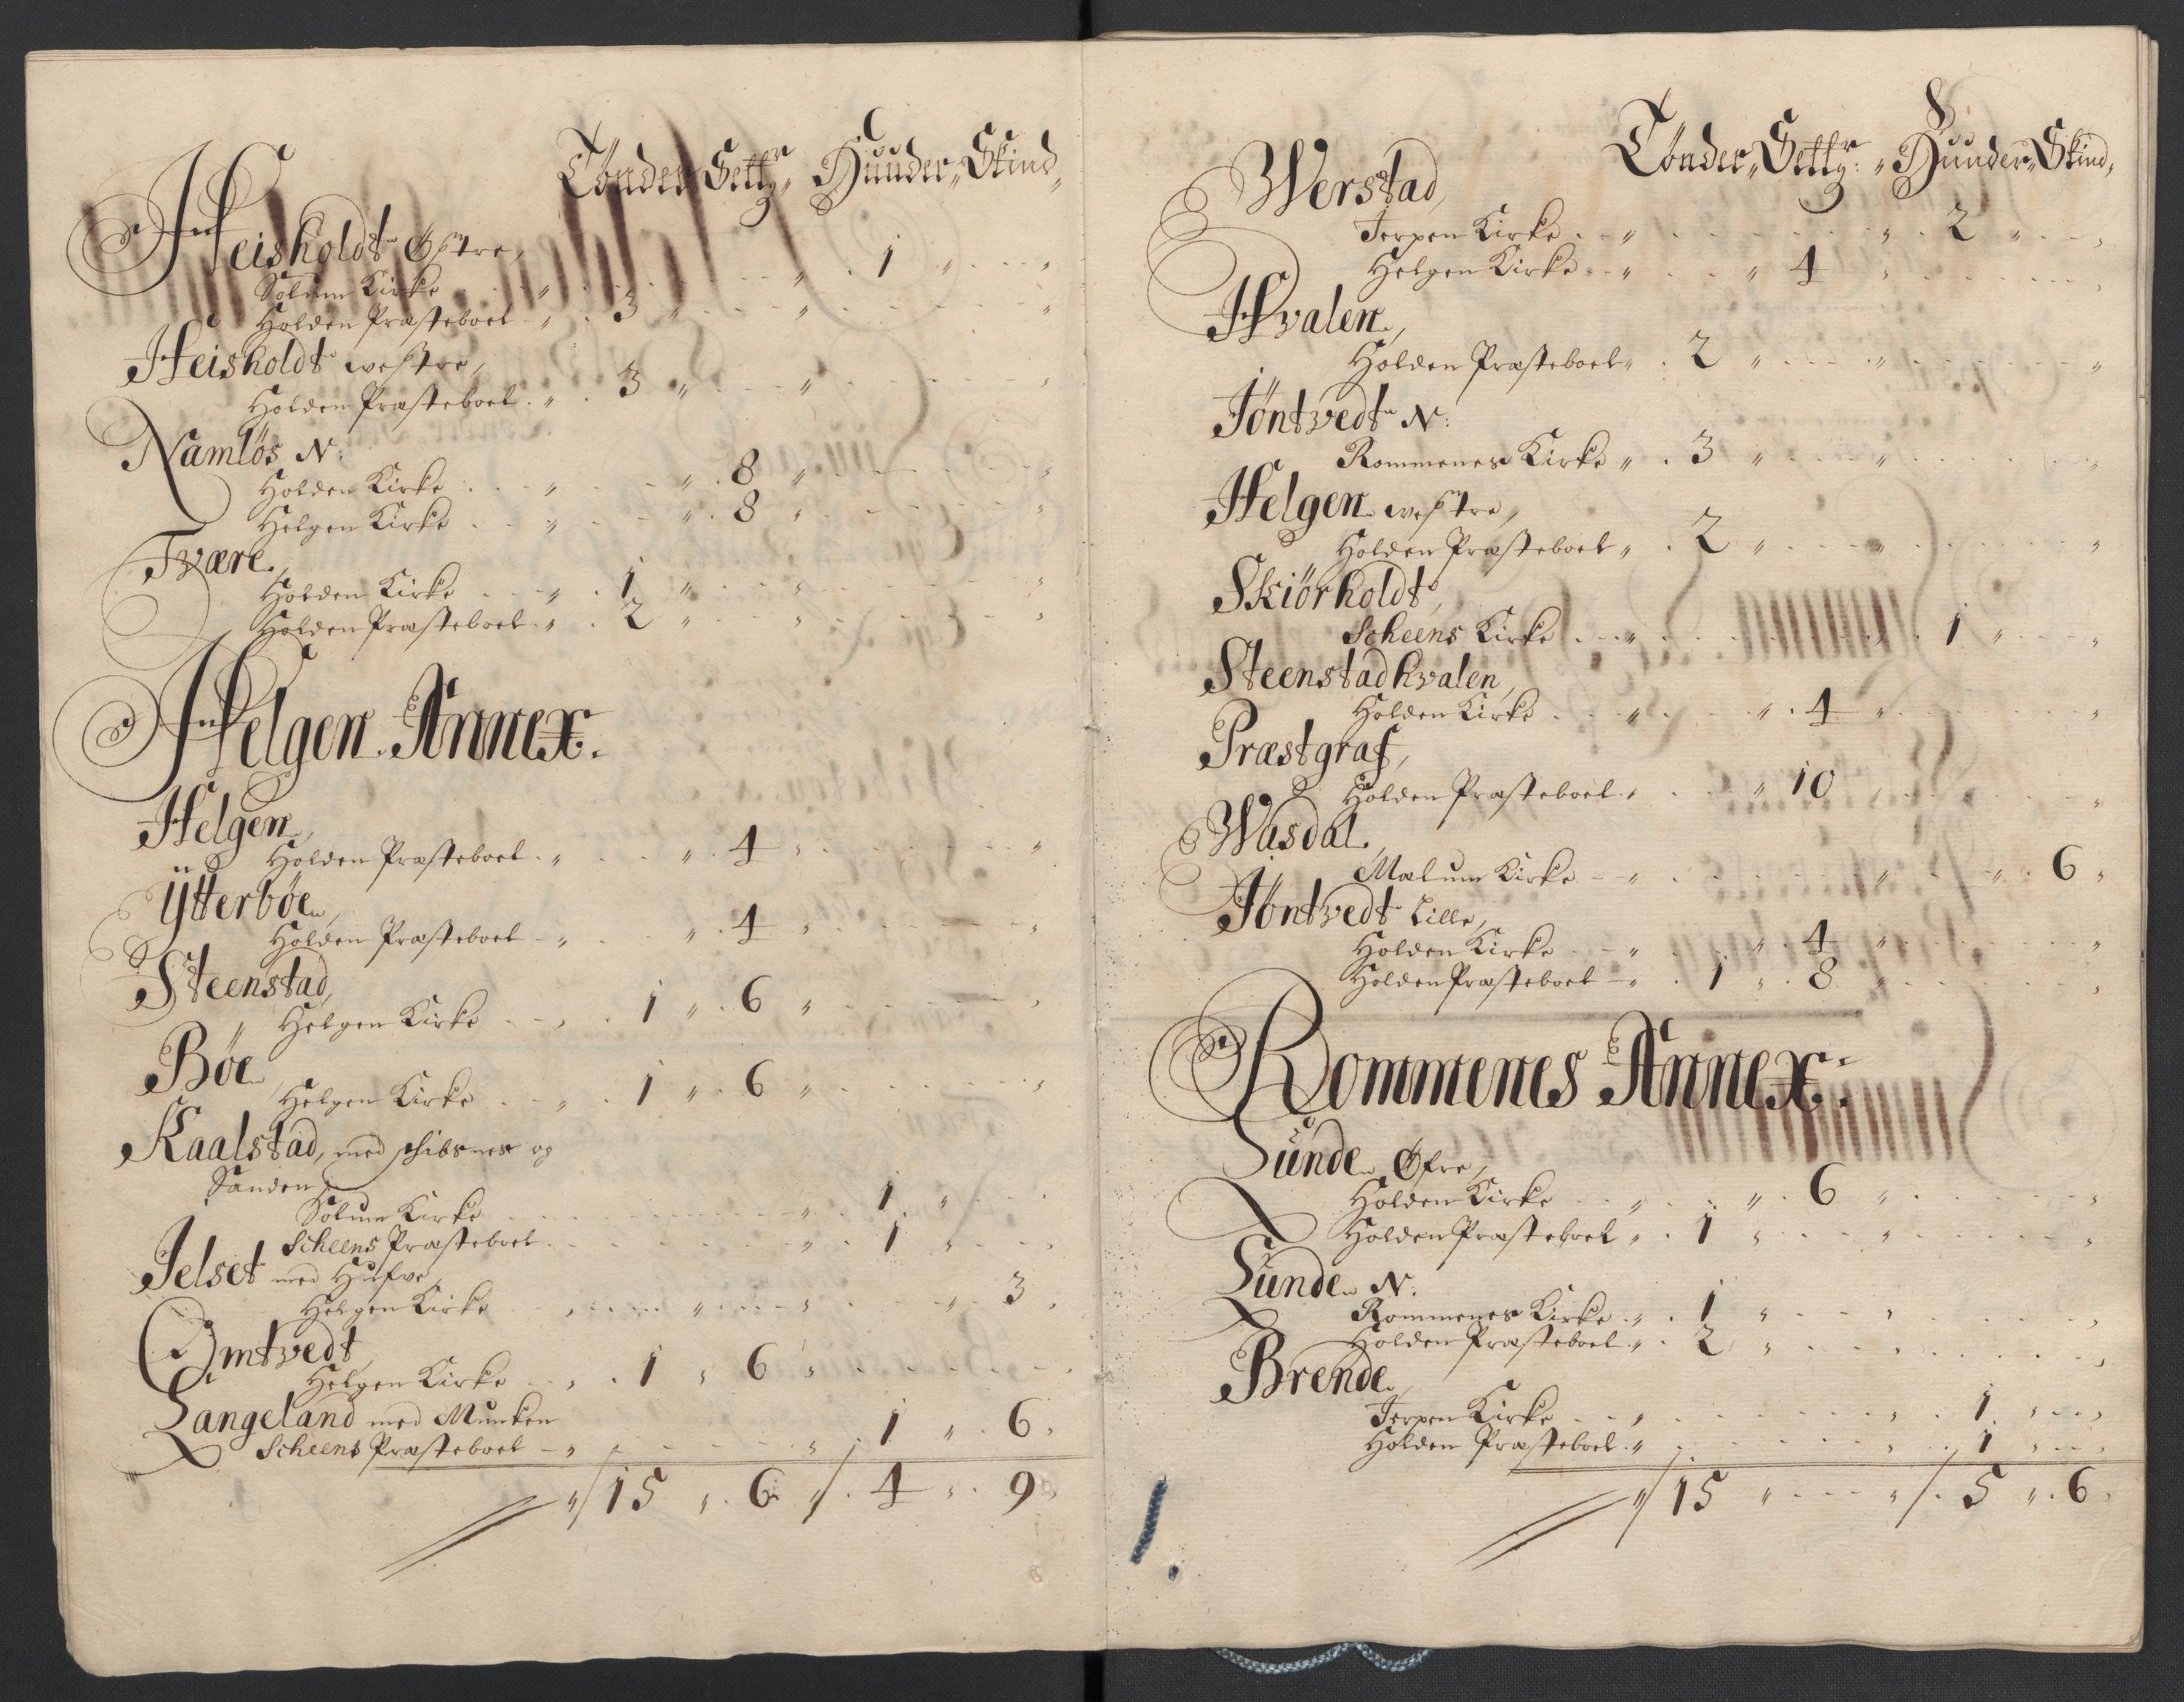 Tönder, Settr, Hüüder, Skind,
Heisholdt Østre,
Solum Kirke - - " - - - - " . 1 " - - "
Holden Præsteboel - " . 3 " - - " - - - "
Heisholdt westre,
Holden Præsteboel . " . 3 " - - " - - - "
Namløs N:
Holden Kirke . . . " - - " . 8 " - - - "
Helgen Kirke . . . " - - " . 8 " - - - "
Tvære,
Holden Kirke . . . " . 1 " - - " - - - "
Holden Præsteboel . " . 2 " - - " - - - "
Helgen Annex.
Helgen,
Holden Præsteboel . " - - " . 4 " - - - "
Ÿtterbøe,
Holden Præsteboel - " - - " . 4 " - - - "
Steenstad,
Helgen Kirke - - " . 1 " . 6 " - - - "
Bøe,
Helgen Kirke - - " . 1 " . 6 " - - - "
Kaalstad, med schibsnes og
Sanden,
Solum Kirke - - - - - " . 1 " - -
Scheens Præsteboel - - - - " . 1 " - - "
Jelset med Hufve,
Helgen Kirke - - " - - " - - " - - " . 3 "
Omtvedt,
Helgen Kirke - - " . 1 " . 6 " - - - "
Langeland med Munken
Scheens Præsteboel - " - - - - " . 1 " . 6 "
"/ 15 " . 6 "/. 4 " . 9 "
Tönder, Settr: " Hüünder, Skind,
Werstad,
Jerpen Kirke . - " - - - - " . 2 " - - "
Helgen Kirke - - " - - " 4 " - - - "
Hvalen,
Holden Præsteboel " . 2 " - - " - - - "
Jöntvedt N:
Rommenes Kirke " . 3 " - - " - - - "
Helgen westre,
Holden Præsteboel " . 2 " - - " - - - "
Skiörholdt,
Scheens Kirke . - " - - - - - . 1 " - - "
Steenstadhvalen,
Holden Kirke . - " - - " . 4 " - - - "
Præstgraf,
Holden Præsteboel " - - " 10 " - - - "
Wasdal,
Mælum Kirke - - " - - - - " - - " . 6 "
Jöntvedt Lille,
Holden Kirke - - " - - " . 4 " - - - "
Holden Præsteboel - " . 1 " . 8 " - - - "
Rommenes Annex:
Lünde Øfre,
Holden Kirke - - " - - " . 6 " - - - "
Holden Præsteboel " . 1 " - - " - - - "
Lünde N:
Rommenes Kirke " . 1 " - - " - - - "
Holden Præsteboel " . 2 " - - " - - - "
Brende,
Jerpen Kirke - - " - - - - " . 1 " - - "
Holden Præsteboel " - - - - " . 1 " - - "
"/ 15 " - - - "/. 5 " . 6 "